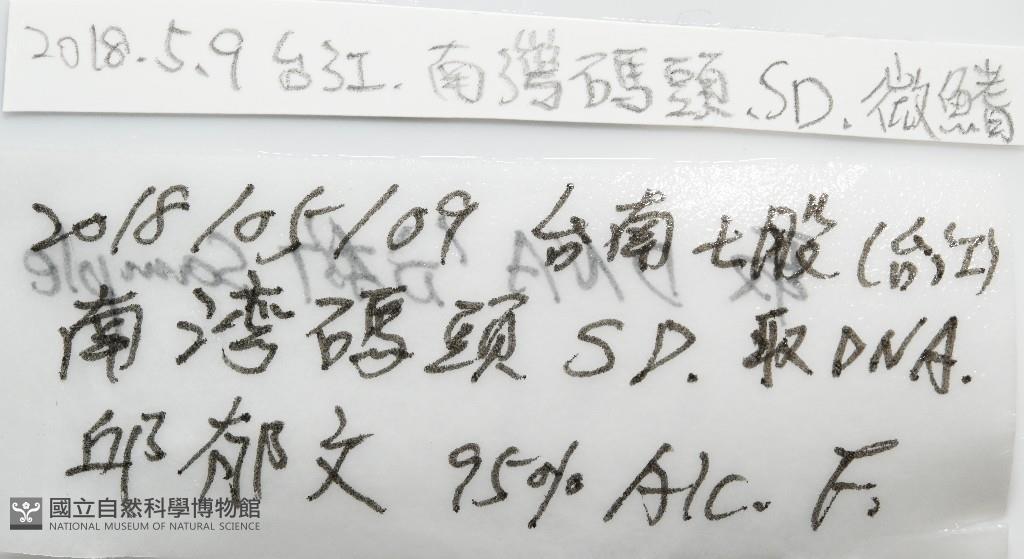 2018.5.9 台江.南灣碼頭.SD.微鰭
2018/05/09 台南七股(台江)
南灣碼頭 SD. 取DNA.
邱郁文 95% Alc. F.
國立自然科學博物館
NATIONAL MUSEUM OF NATURAL SCIENCE